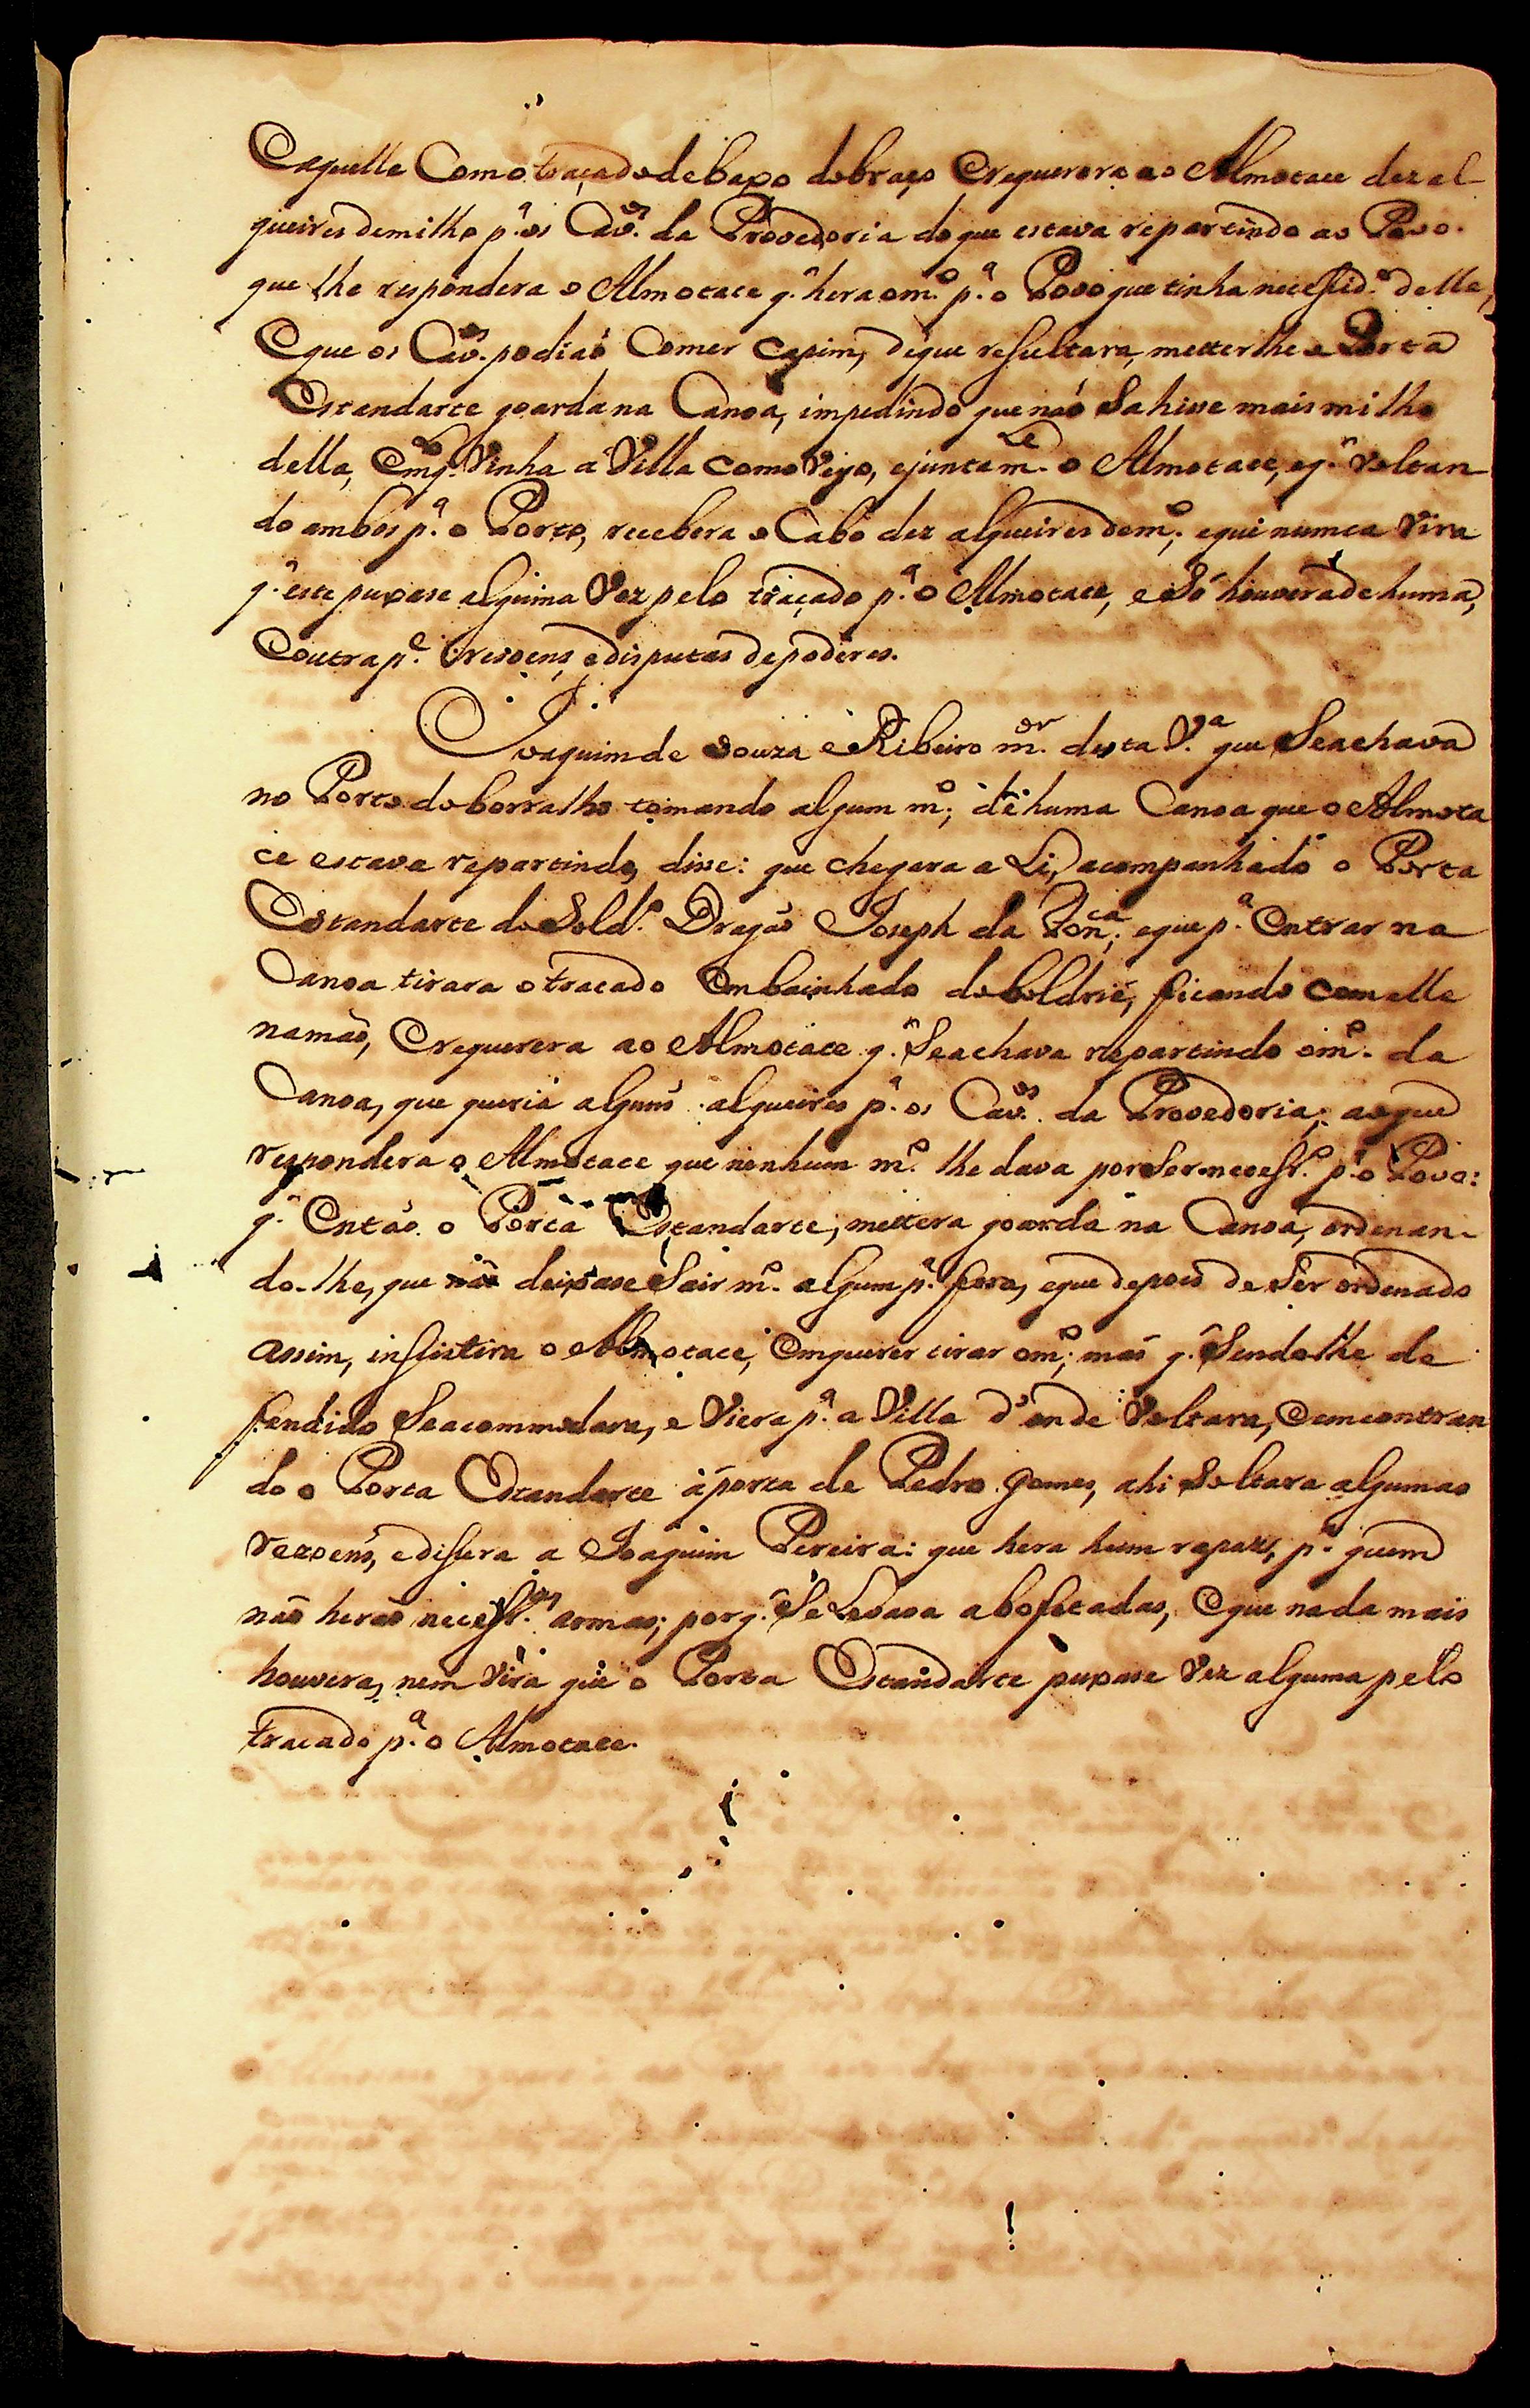 Eaquelle Com o traçado debaxo do braço Erequerera ao Almotace dez al
queires de milho p.ª os Cav.os da Provedoria do que estava repartindo ao Povo.
que lhe respondera o Almotace q.' hera o m.º p.ª o Povo que tinha necessid.e delle,
Eque os Cav.os podiaõ Comer capim, de que resultara, metter lhe o Porta
Estandarte goarda na Canoa, impedindo que naõ Sahisse mais milho
della, Emq.to Vinha a Villa como veyo, ejuntam.te o Almotace, eq.' voltan
do ambos p.ª o Porto, recebera o Cabo dez alqueires de m.º; eque nunca vira
q.' este puxase alguma Vez pelo traçado p.ª o Almotace, e Só houvera de huma,
Eoutra p.e rezoens, edisputas de poderes.
Joaquim de Souza e Ribeiro m.or desta V.ª que Se achava
no Porto do borralho tomando algum m.º; de huma Canoa que o Almota
ce estava repartindo, disse: que chegara a Li, acompanhado o Porta
Estandarte do Sold.º Dragaõ Joseph da Fon.ca; eque p.ª Entrar na
Canoa tirara o tracado Embainhado do boldrié, ficando com elle
na maõ, Erequerera ao Almotace q.' Se achava repartindo o m.º da
Canoa, que queria alguns alqueires p.ª os Cav.os da Provedoria; ao que
respondera o Almotace que nenhum m.º lhe dava por Ser necess.º p.ª o Povo:
q.' Entaõ o Porta Estandarte, mettera goarda na Canoa, ordenan-
do-lhe, que naõ deixase Sair m.º algum p.ª fora, eque depois de Ser ordenado
assim, insistira o Almotace, Em querer tirar o m.º; mas q.' Sendo lhe de
fendido Se acommodara, e Viera p.ª a Villa d'onde Voltara, Eemcontran
do o Porta Estandarte á porta de Pedro Gomes, ahi Soltara algumas
rezoens, edissera a Joaquim Pereira: que hera hum rapaz, p.ª quem
naõ heraõ necess.as armas; porq.' Se Levava a bofetadas, Eque nada mais
houvera, nem vira que o Porta Estandarte puxase Vez alguma pelo
tracado p.ª o Almotace.